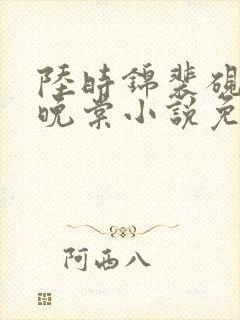 陸時錦裴硯
晚棠小說免
阿西八